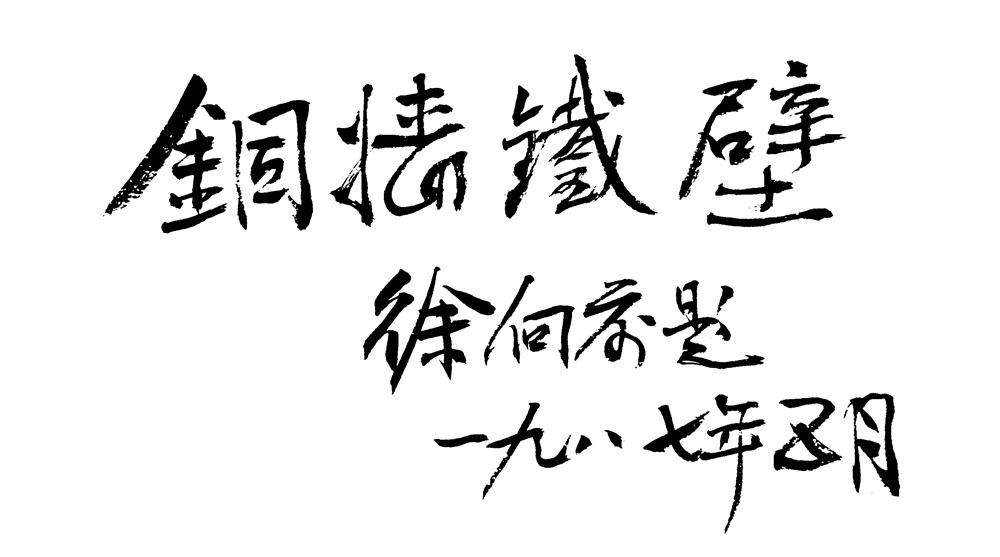 銅墻鐵壁
徐向前題
一九八七年五月